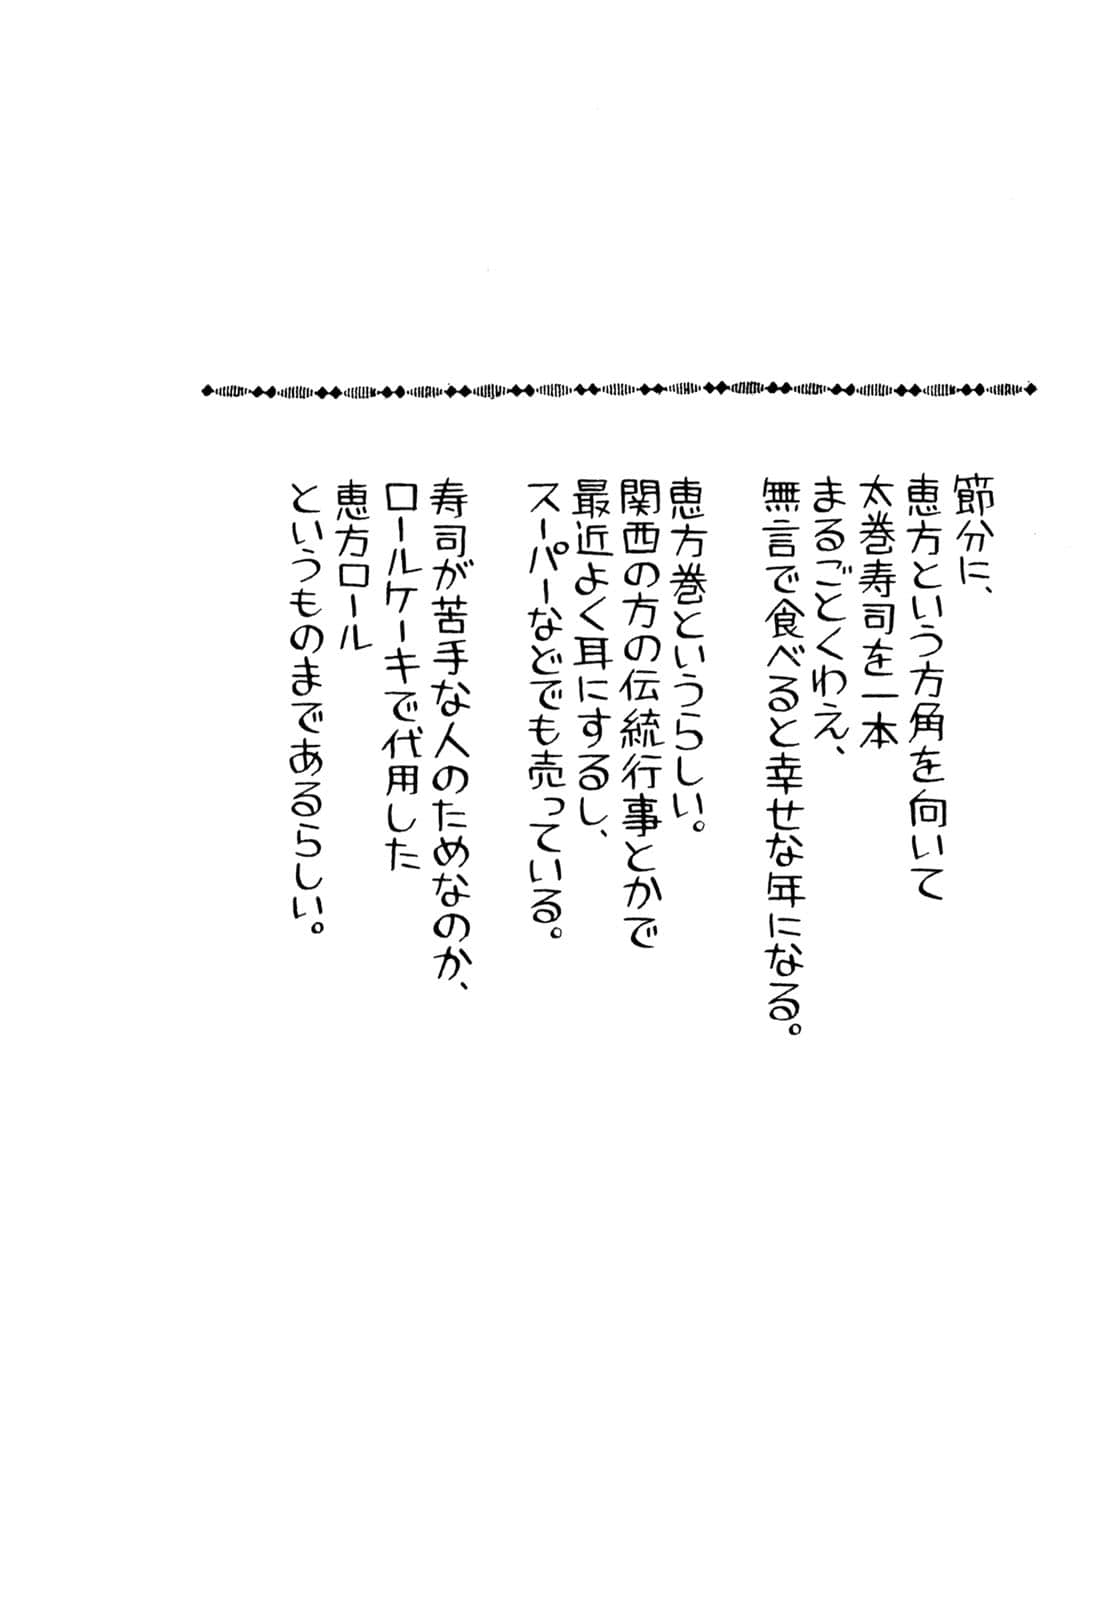 節分に、
恵方という方角を向いて
太巻寿司を一本
まるごとくわえ、
無言で食べると幸せな年になる。
恵方巻というらしい。
関西の方の伝統行事とかで
最近よく耳にするし、
スーパーなどでも売っている。
寿司が苦手な人のためなのか、
ロールケーキで代用した
恵方ロール
というものまであるらしい。